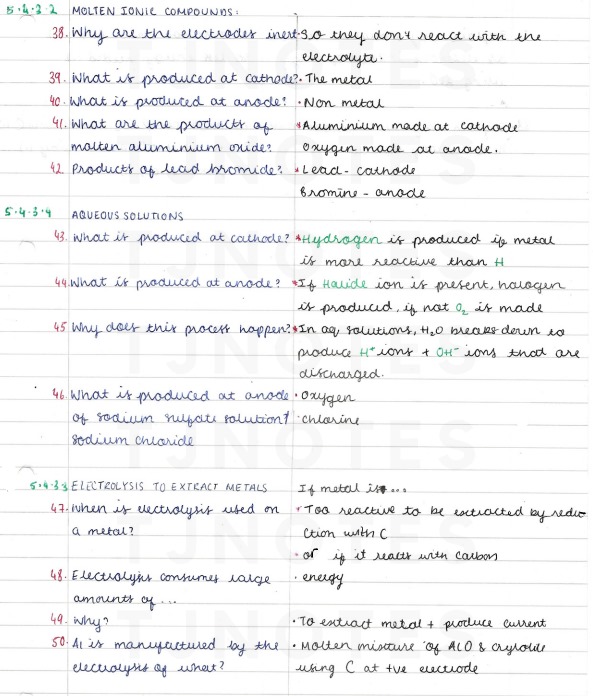 5.4.3.2 MOLTEN IONIC COMPOUNDS:
38. Why are the electrodes inert? • So they don't react with the
electrolyte.
39. What is produced at cathode? • The metal
40. What is produced at anode? • Non metal
41. What are the products of • Aluminium made at cathode
molten aluminium oxide? Oxygen made at anode.
42. Products of lead bromide? • Lead - cathode
Bromine - anode
5.4.3.4 AQUEOUS SOLUTIONS
43. What is produced at cathode? • Hydrogen is produced if metal
is more reactive than H
44. What is produced at anode? • If Halide ion is present, halogen
is produced, if not O₂ is made
45 Why does this process happen? • In aq solutions, H₂O breaks down to
produce H⁺ ions + OH⁻ ions that are
discharged.
46. What is produced at anode • Oxygen
of sodium sulfate solution? • Chlorine
sodium chloride
5.4.3.3 ELECTROLYSIS TO EXTRACT METALS If metal is...
47. When is electrolysis used on • Too reactive to be extracted by redu-
a metal? ction with C
• or if it reacts with carbon
48. Electrolysis consumes large • energy
amounts of ...
49. Why? • To extract metal + produce current
50. Al is manufactured by the • Molten mixture of AlO & cryolite
electrolysis of what? using C at +ve electrode
TJNOTES
TJNOTES
TJNOTES
TJNOTES
TJNOTES